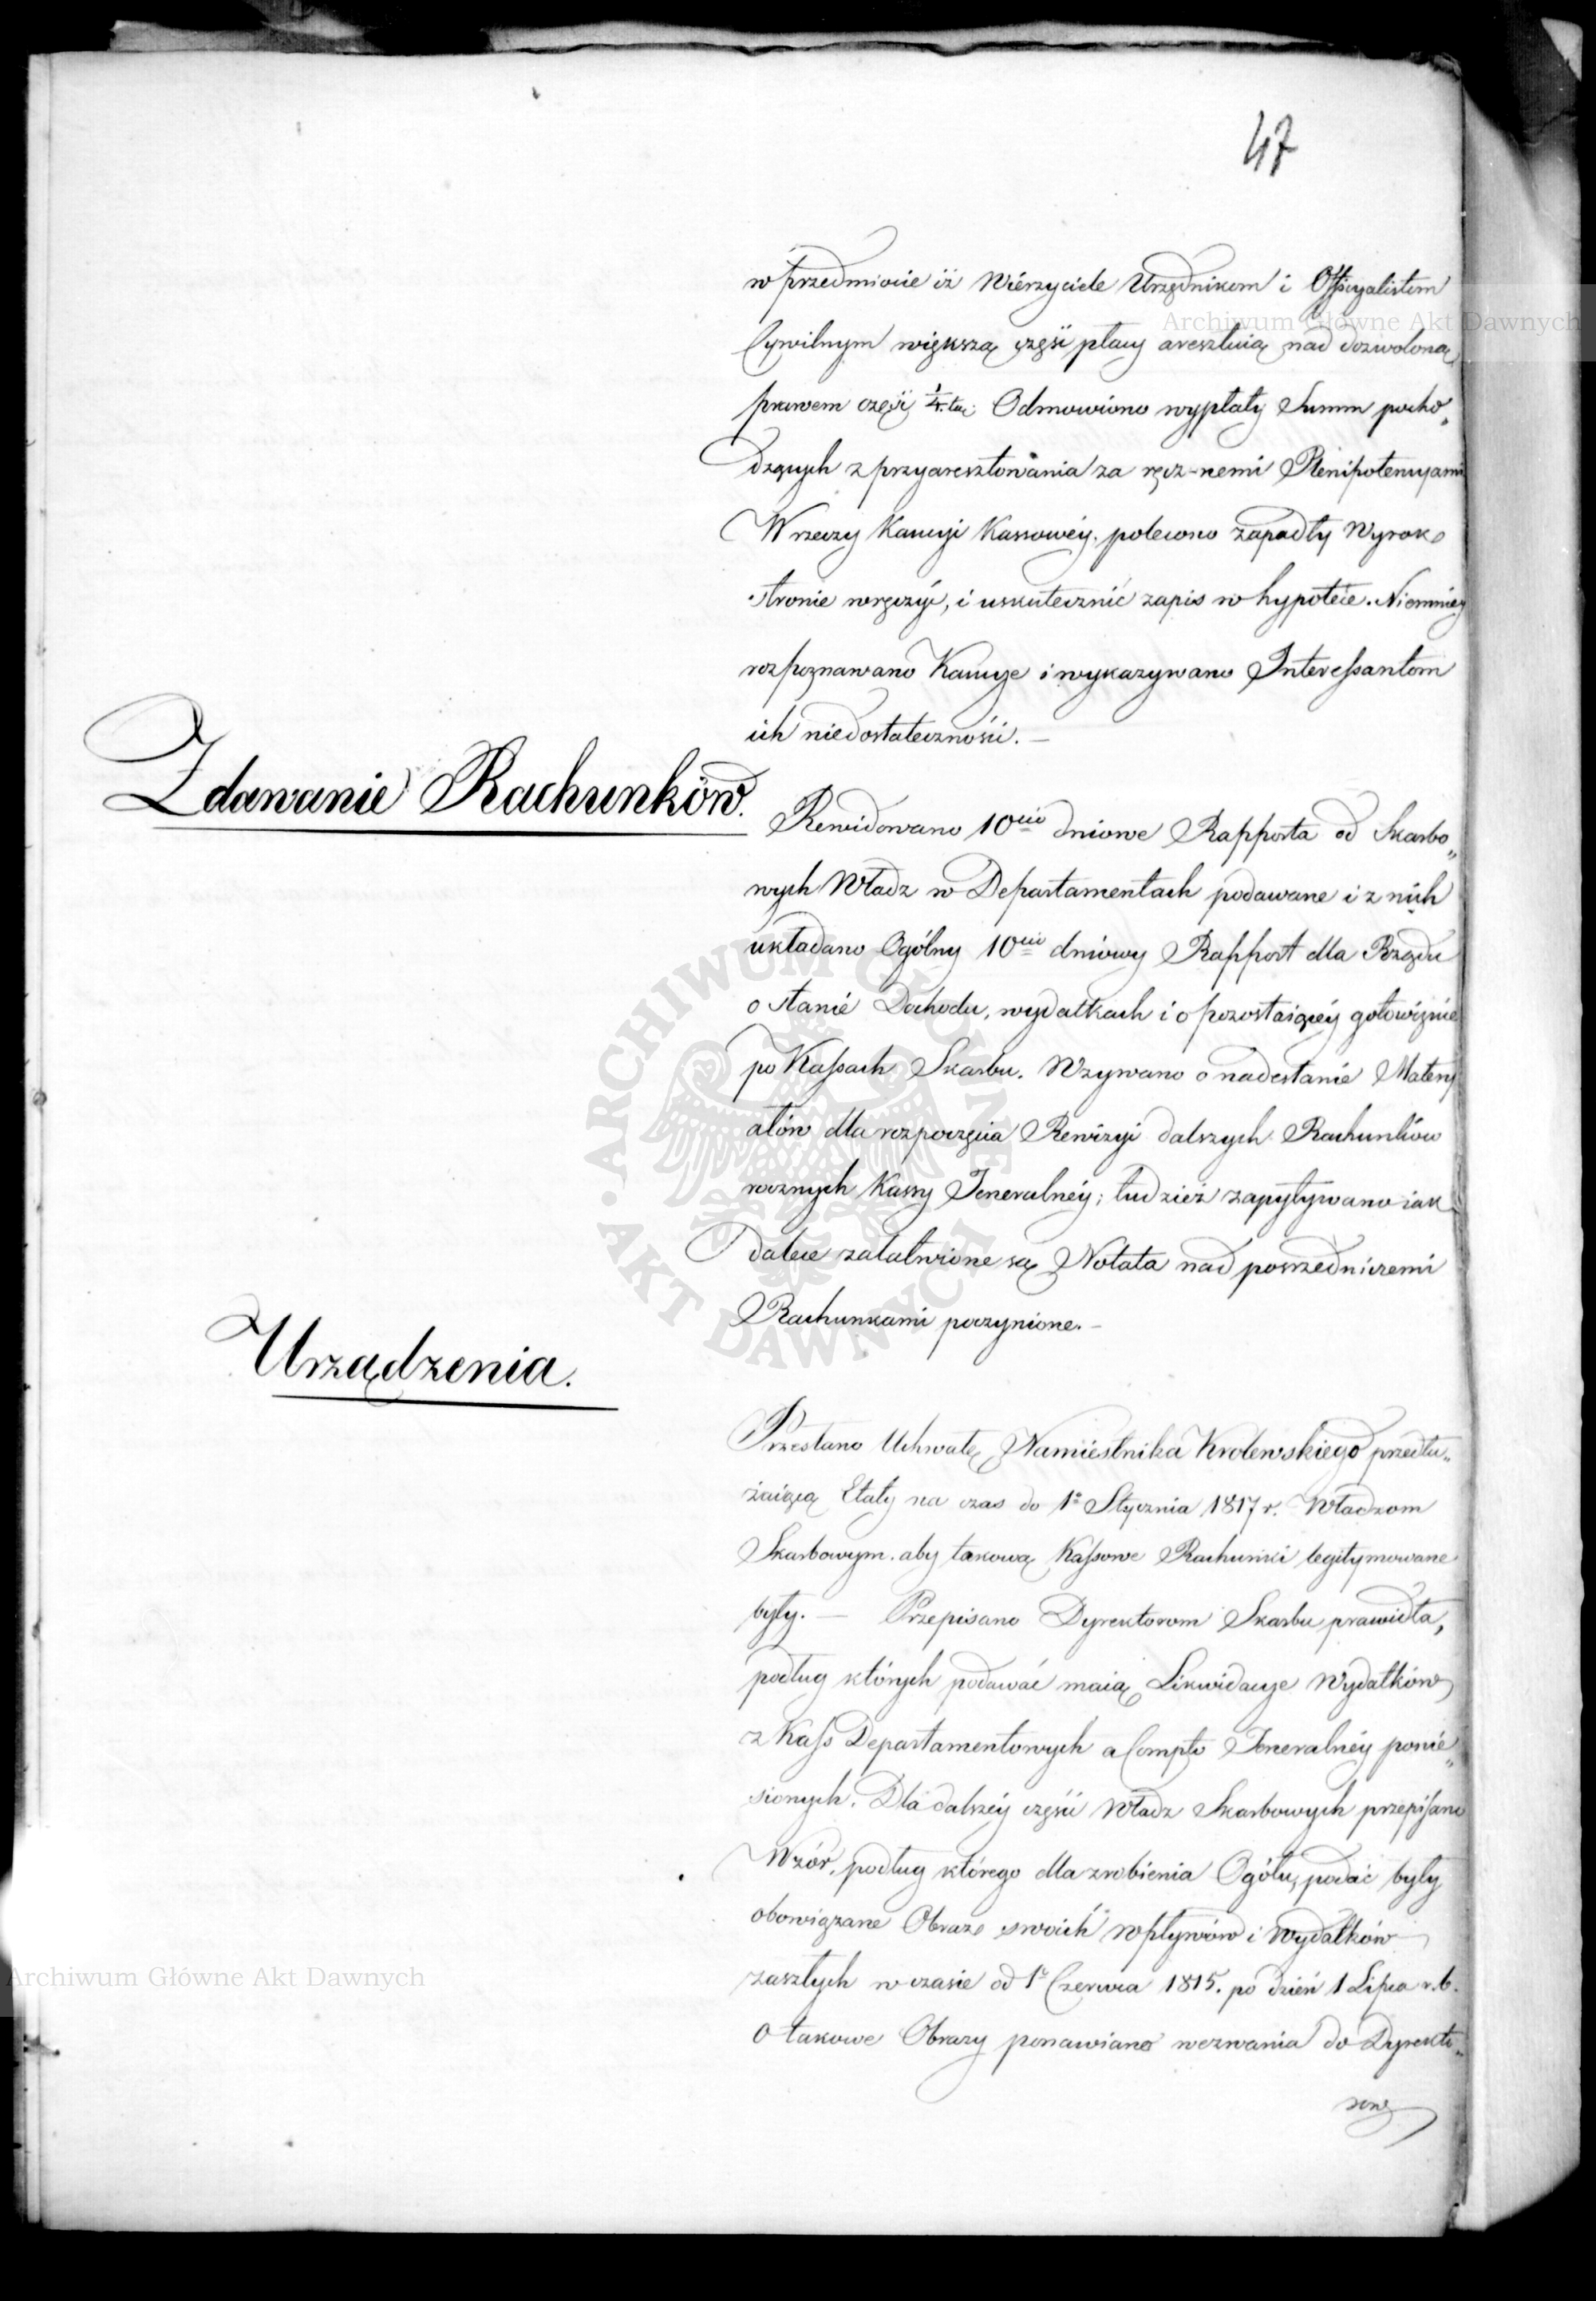 47
w przedmiocie iż Wierzyciele Urzędnikom i Offcyalistom
Cywilnym większą część płacy aresztuią nad dozwoloną
prawem części 1/4.tą; Odmowiono wypłaty Summ pocho„
dzących z przyaresztowania za ręcz-nemi Plenipotencyami
W rzeczy Kaucyi Kassowéy. polecono zapadły Wyrok
stronie wręczyć, i uskutecznić zapis w hypotece. Niemniey
rozpoznawano Kaucye i wykazywano Interessantom
ich niedostateczności. —
Zdawanie Rachunków.
Rewidowano 10cio dniowe Rapporta od Skarbo„
wych Władz w Departamentach podawane i z nich
układano Ogólny 10cio dniowy Rapport dla Rządu
o stanie Dochodu, wydatkach i o pozostaiącéy gotowiznie
po Kassach Skarbu. Wzywano o nadesłanie Matery
ałów dla rozpoczęcia Rewizyi dalszych Rachunków
rocznych Kassy Jeneralnéy; tudzież zapytywano iak
dalece załatwione są Notata nad poprzedniczemi
Rachunkami poczynione. —
Urządzenia.
Przesłano Uchwałę Namiestnika Krolewskiego przedłu„
żaiącą Etaty na czas do 1o Stycznia 1817 r. Władzom
Skarbowym. aby takową Kassowe Rachunki legitymowane
były. — Przepisano Dyrektorom Skarbu prawidła,
podług których podawać maią Likwidacye Wydatków
z Kass Departamentowych a Compto Jeneralnéy ponie„
sionych. Dla dalszéy części Władz Skarbowych przepisano
Wzór, podług którego dla zrobienia Ogółu, podać były
obowiązane Obraz swoich wpływów i Wydatków
zaszłych w czasie od 1o Czerwca 1815. po dzień 1 Lipca r.b.
O takowe Obrazy ponawiano wezwania do Dyrekto„
rów
Archiwum Główne Akt Dawnych
Archiwum Główne Akt Dawnych
ARCHIWUM GŁÓWNE AKT DAWNYCH